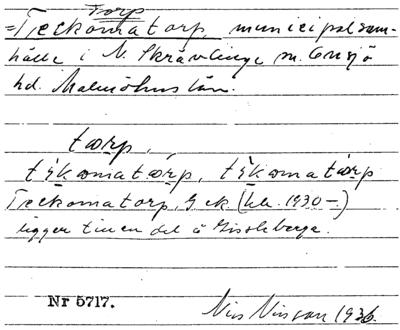 Torp
=Teckomatorp municipalsam-
hälle i N. Skrävlinge sn. Onsjö
hd. Malmöhus län.
tɷrp,
Teckomatorp, G ek (bl. 1930–)
ligger till en del å Gissleberga.
Nr 5717.
Nils Nilsson 1936.